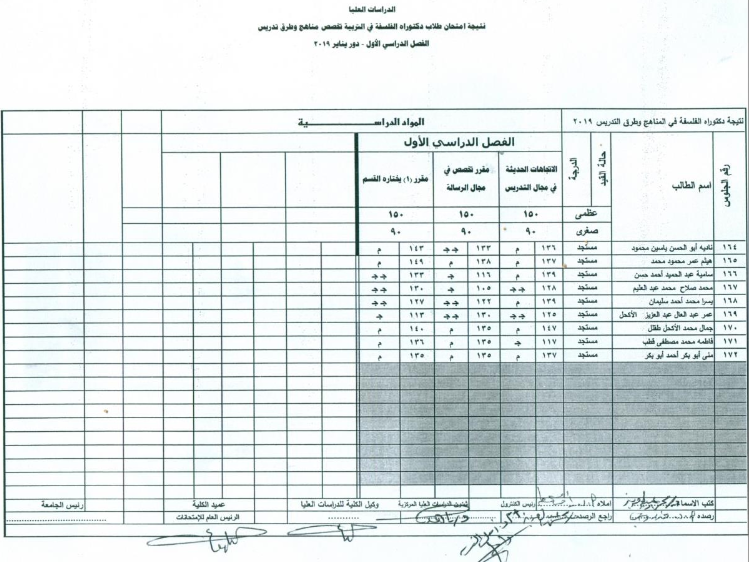 الدراسات العليا
نتيجة امتحان طلاب دكتوراه الفلسفة في التربية تخصص مناهج وطرق تدريس
الفصل الدراسي الأول - دور يناير ٢٠١٩
نتيجة دكتوراه الفلسفة في المناهج وطرق التدريس ٢٠١٩ المواد الدراســـــــية
الفصل الدراسي الأول
رقم الجلوس اسم الطالب حالة القيد الدرجة الاتجاهات الحديثة في مجال التدريس مقرر تخصص في مجال الرسالة مقرر (١) يختاره القسم
عظمى ١٥٠ ١٥٠ ١٥٠
صغرى ٩٠ ٩٠ ٩٠
١٦٤ ناديه أبو الحسن ياسين محمود مستجد ١٣٦ م ١٣٣ جـ جـ ١٤٣ م
١٦٥ هيثم عمر محمود محمد مستجد ١٣٧ م ١٣٨ م ١٤٩ م
١٦٦ سامية عبد الحميد أحمد حسن مستجد ١٣٩ م ١١٦ جـ ١٣٣ جـ جـ
١٦٧ محمد صلاح محمد عبد العليم مستجد ١٢٨ جـ جـ ١٠٥ جـ ١٣٠ جـ جـ
١٦٨ يسرا محمد أحمد سليمان مستجد ١٣٩ م ١٢٢ جـ جـ ١٢٧ جـ جـ
١٦٩ عمر عبد العال عبد العزيز الأكحل مستجد ١٢٥ جـ جـ ١٣٠ جـ جـ ١١٣ جـ
١٧٠ جمال محمد الأكحل طفلل مستجد ١٤٧ م ١٣٥ م ١٤٠ م
١٧١ فاطمه محمد مصطفى قطب مستجد ١١٧ جـ ١٣٥ م ١٣٦ م
١٧٢ منى أبو بكر أحمد أبو بكر مستجد ١٣٧ م ١٣٥ م ١٣٥ م
كتب الاسماء املاه رئيس الكنترول شئون الدراسات العليا المركزية وكيل الكلية للدراسات العليا عميد الكلية رئيس الجامعة
رصده راجع الرصد الرئيس العام للإمتحانات